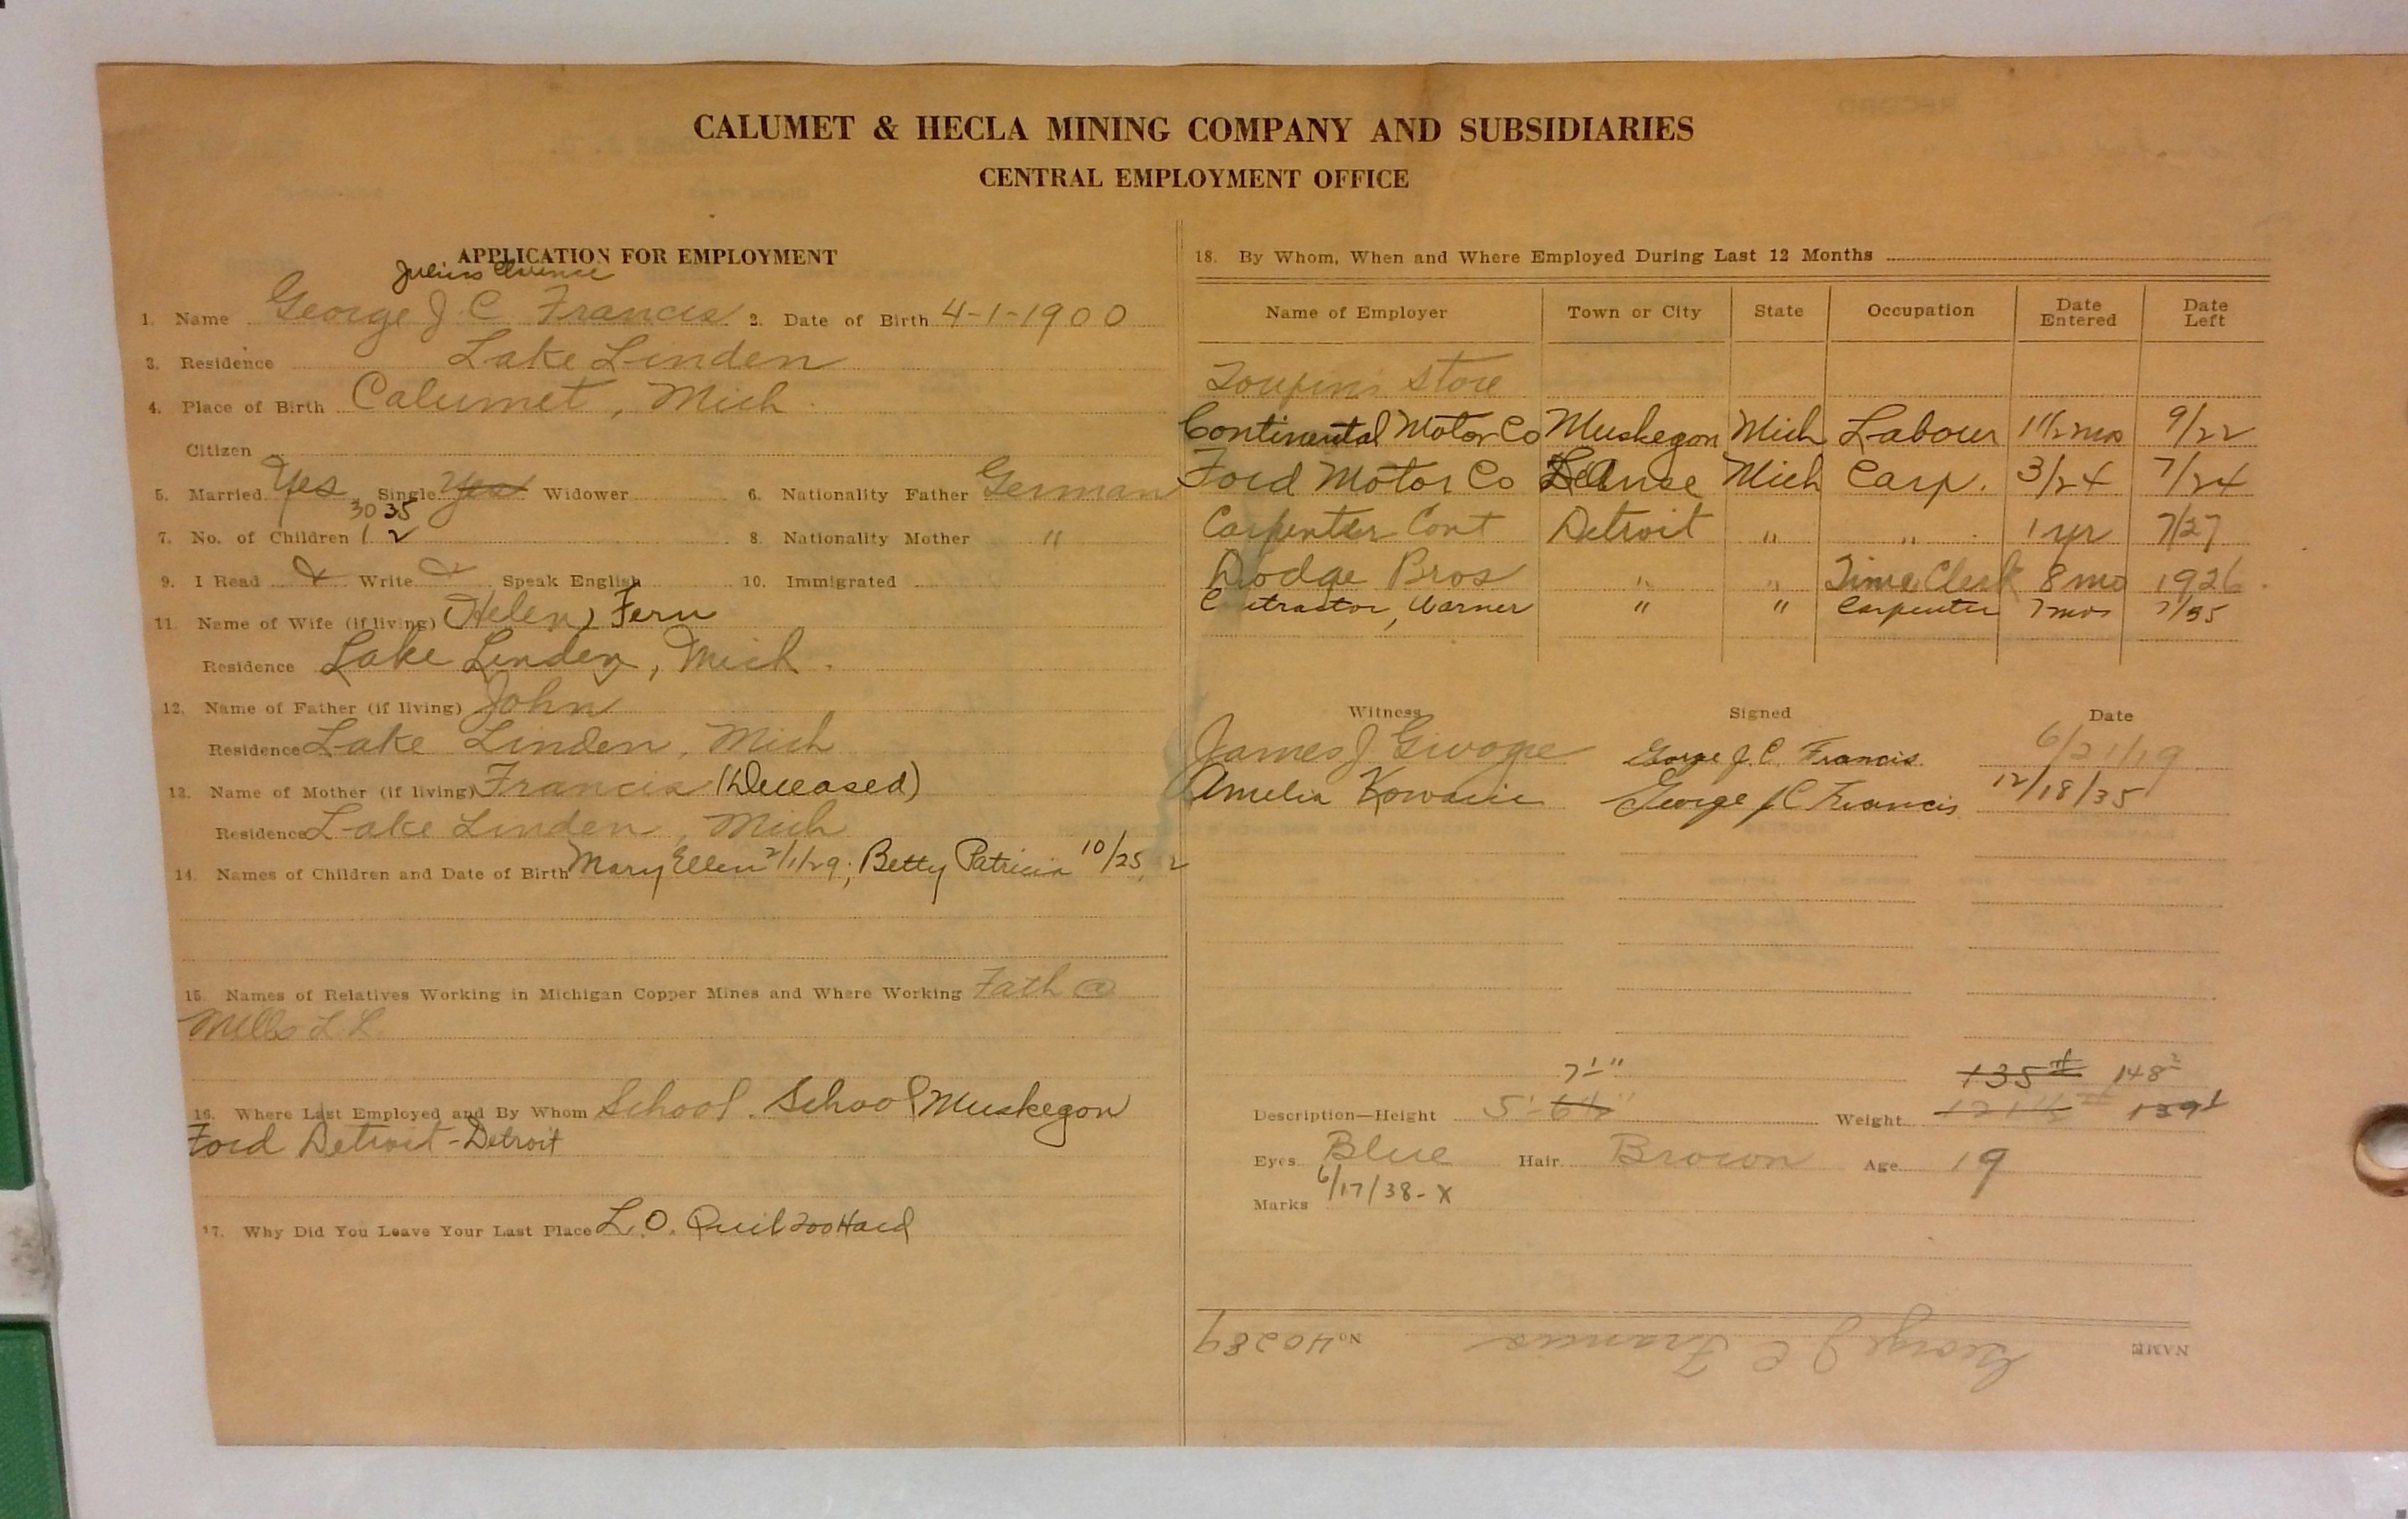 CALUMET & HECLA MINING COMPANY AND SUBSIDIARIES
CENTRAL EMPLOYMENT OFFICE
APPLICATION FOR EMPLOYMENT
Julius Clarence
1. Name George J. C. Francis 2. Date of Birth 4-1-1900
3. Residence Lake Linden
4. Place of Birth Calumet, Mich
Citizen
5. Married Yes Single Yes Widower 6. Nationality Father German
30 35
7. No. of Children 1 2 8. Nationality Mother "
9. I Read Write Speak English 10. Immigrated
11. Name of Wife (if living) (Helen) Fern
Residence Lake Linden, Mich.
12. Name of Father (if living) John
Residence Lake Linden, Mich
13. Name of Mother (if living) Francis (Deceased)
Residence Lake Linden, Mich
14. Names of Children and Date of Birth Mary Ellen 2/1/29; Betty Patricia 10/25,
15. Names of Relatives Working in Michigan Copper Mines and Where Working Fath @
Mills L L
16. Where Last Employed and By Whom School. School Muskegon
Ford Detroit - Detroit
17. Why Did You Leave Your Last Place L.O. Quit too Hard
18. By Whom, When and Where Employed During Last 12 Months
Name of Employer Town or City State Occupation Date Entered Date Left
Toupins Store
Continental Motor Co Muskegon Mich Labour 1 1/2 mos 9/22
Ford Motor Co L'Anse Mich Carp. 3/24 7/24
Carpenter Cont Detroit " " 1 yr 7/27
Dodge Bros " " Time Clerk 8 mo 1926
Contractor, Warner " " Carpenter 7 mos 7/35
Witness Signed Date
James J. George J. C. Francis 6/21/19
Amelia George J C Francis 12/18/35
7 1/2" 135# 148
Description—Height 5'-6 1/2" Weight 121 1/2# 139
Eyes Blue Hair Brown Age 19
6/17/38-X
Marks
NAME George J C Francis No. 40289